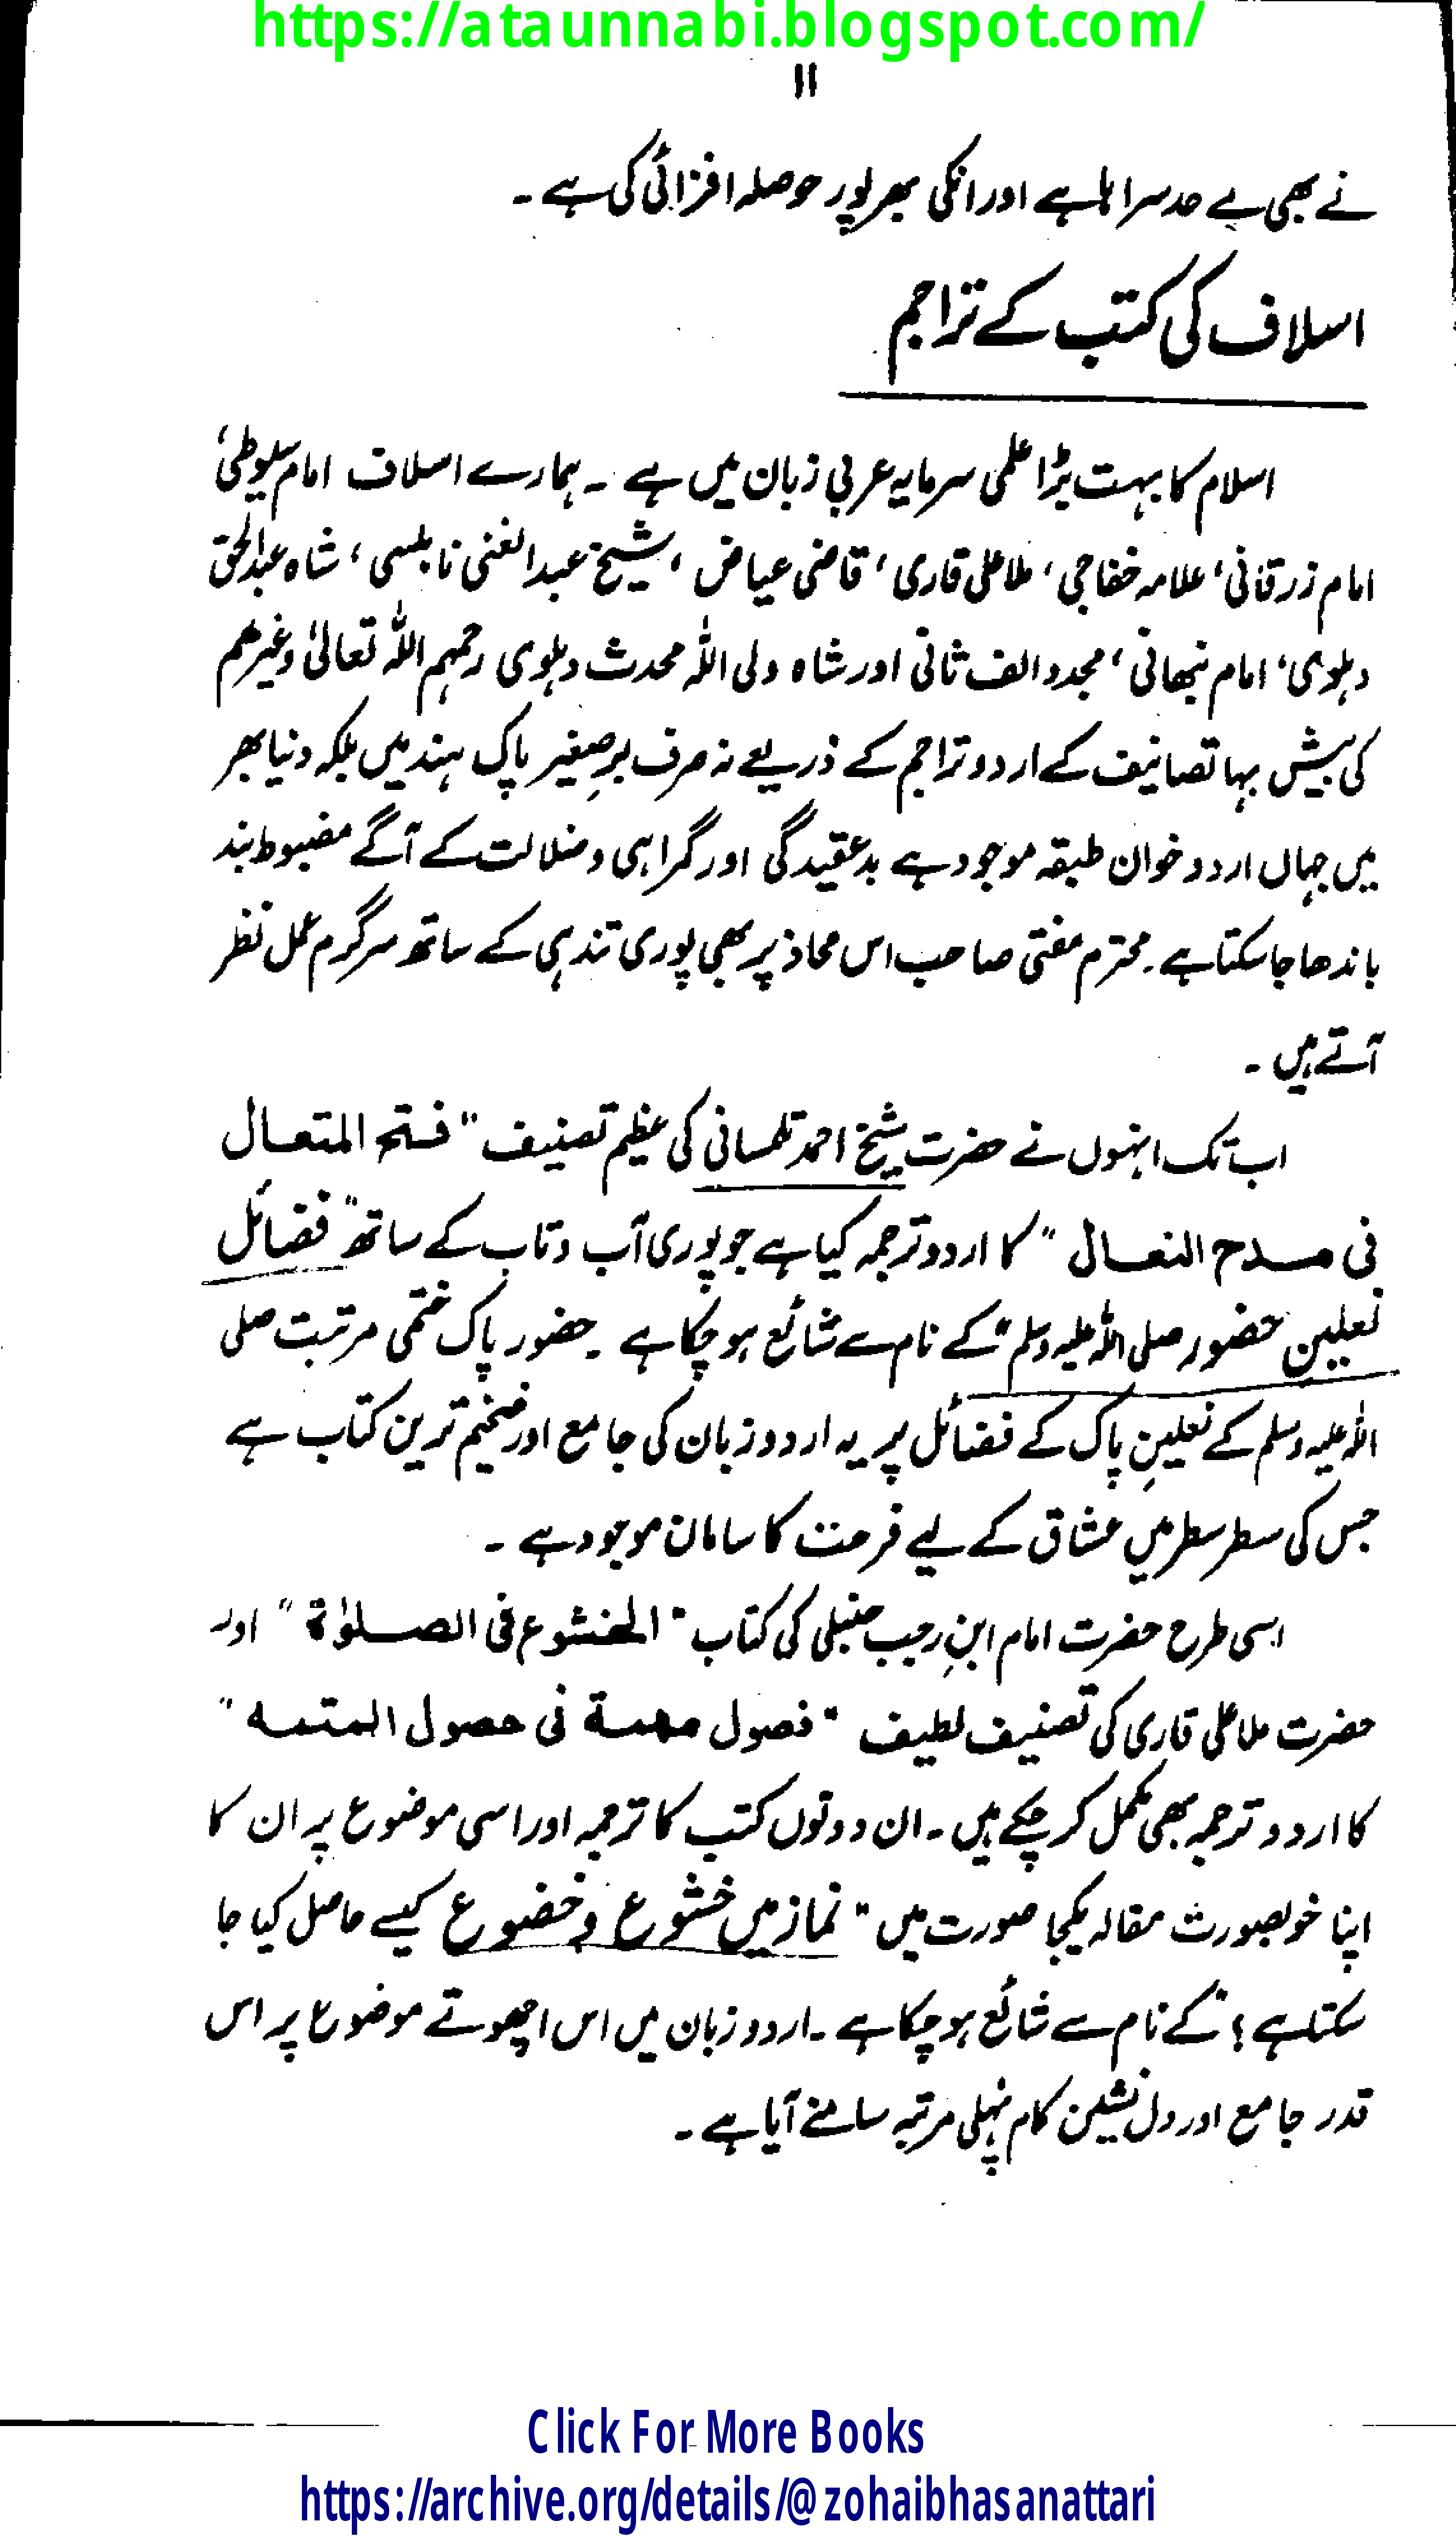 https://ataunnabi.blogspot.com/
۱۱
نے بھی بے حد سراہا ہے اور انکی بھرپور حوصلہ افزائی کی ہے ۔
اسلاف کی کتب کے تراجم
اسلام کا بہت بڑا علمی سرمایہ عربی زبان میں ہے ۔ ہمارے اسلاف امام سیوطی،
امام زرقانی، علامہ خفاجی، ملا علی قاری، قاضی عیاض، شیخ عبدالغنی نابلسی، شاہ عبدالحق
دہلوی، امام نبھانی، مجدد الف ثانی اور شاہ ولی اللہ محدث دہلوی رحمہم اللہ تعالیٰ وغیرھم
کی بیش بہا تصانیف کے اردو تراجم کے ذریعے نہ صرف برِصغیر پاک ہند میں بلکہ دنیا بھر
میں جہاں اردو خوان طبقہ موجود ہے بدعقیدگی اور گمراہی و ضلالت کے آگے مضبوط بند
باندھا جا سکتا ہے۔ محترم مفتی صاحب اس محاذ پر بھی پوری تندہی کے ساتھ سرگرم عمل نظر
آتے ہیں ۔
اب تک انہوں نے حضرت شیخ احمد تلمسانی کی عظیم تصنیف "فتح المتعال
فی مدح النعال" کا اردو ترجمہ کیا ہے جو پوری آب و تاب کے ساتھ "فضائل
نعلین حضور صلی اللہ علیہ وسلم" کے نام سے شائع ہو چکا ہے ۔ حضور پاک ختمی مرتبت صلی
اللہ علیہ وسلم کے نعلینِ پاک کے فضائل پر یہ اردو زبان کی جامع اور ضخیم ترین کتاب ہے
جس کی سطر سطر میں عشاق کے لیے فرحت کا سامان موجود ہے ۔
اسی طرح حضرت امام ابنِ رجب حنبلی کی کتاب "الخشوع فی الصلوٰۃ" اور
حضرت ملا علی قاری کی تصنیف لطیف "فصول مهمة فی حصول المتمه"
کا اردو ترجمہ بھی مکمل کر چکے ہیں ۔ ان دونوں کتب کا ترجمہ اور اسی موضوع پر ان کا
اپنا خوبصورت مقالہ یکجا صورت میں "نماز میں خشوع و خضوع کیسے حاصل کیا جا
سکتا ہے؟" کے نام سے شائع ہو چکا ہے ۔ اردو زبان میں اس اچھوتے موضوع پر اس
قدر جامع اور دل نشین کام پہلی مرتبہ سامنے آیا ہے ۔
Click For More Books
https://archive.org/details/@zohaibhasanattari